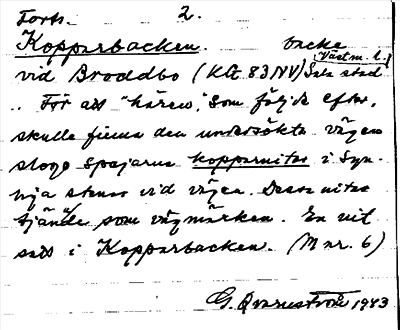 Forts. 2.
Kopparbacken. backe
Västm. l.
vid Broddbo (KG 83NV) Sala stad
.. För att "hären", som följde efter,
skulle finna den undersökta vägen
slogo spejarna kopparnitar i syn-
liga stenar vid vägen. Dessa nitar
tjände som vägmärken. En nit
satt i Kopparbacken. (M nr. 6)
G. Qvarnström 1943